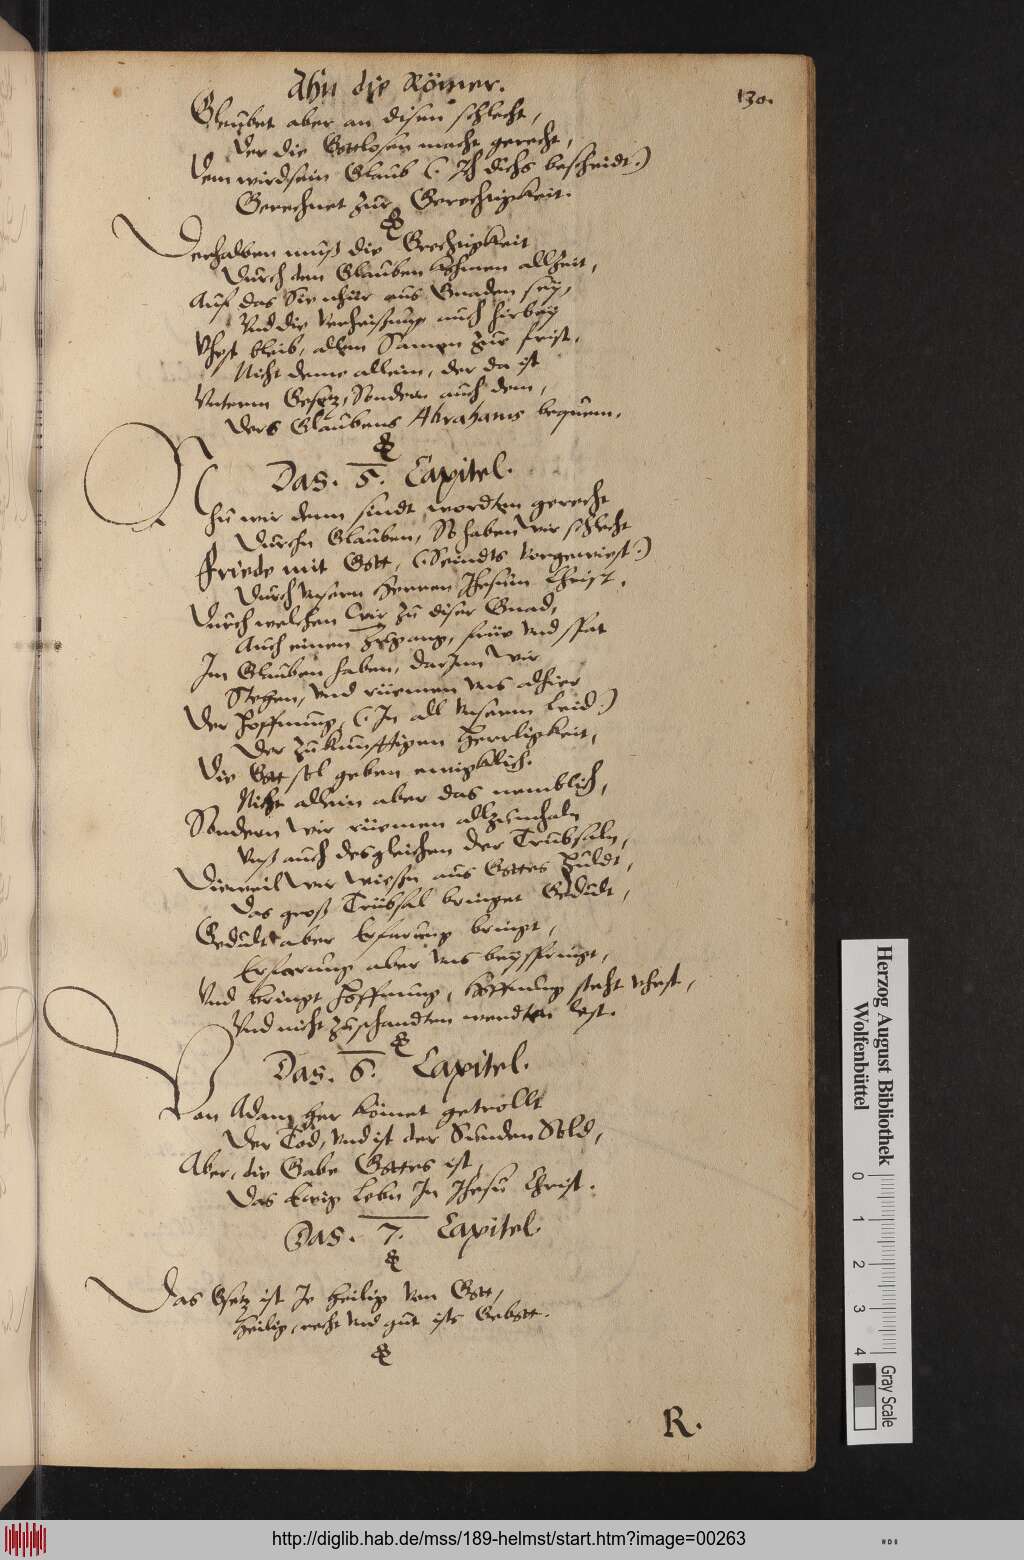 Ahn die Römer.
130.
Gleubet aber an disen schlecht,
Der die Gottlosen macht gerecht,
Dem wirdt sein Glaub (: Ich dichs bescheidt :)
Gerechnet zur Gerechtigkeit.
Derhalben muß die Grechtigkeit
Durch den Glauben khomen allzeit,
Auf das Sie nhur aus Gnaden sey,
Vnd die Verheißung auch hirbey
Vhest bleib, allem Samen zur frist,
Nicht deme allein, der da ist
Vnterm Gesetz, Sondern auch dem,
Ders Glaubens Abrahams bequem.
Das. 5. Capitel.
Nhu wir denn sindt wordten gerecht
Durchn Glauben, So haben wir schlecht
Friede mit Gott, (: Seindts vorgewiest :)
Durch Vnsern Herren Jhesum Christ.
Durch welchen wir zu diser Gnad,
Auch einen Zugang, früe vnd spat
Im Glauben haben, darinn wir
Stehen, vnd rüemen vns alhier
Der Hoffnung, (: In all Vnserm Leid :)
Der zukunfftigen Herrligkeit,
Die Gott sol geben ewigklich.
Nicht allein aber das nemblich,
Sondern wir rüemen allzumaln
Vnß auch desgleichen der Trübsaln,
Dieweil wir wissn aus Gottes Huldt,
Das groß Trübsal bringet Gedult,
Gedult aber Erfarung bringt,
Erfarung aber vns beyspringt,
Vnd bringt Hoffnung, Hoffnung steht vhest,
Vnd nicht zuschandten werdten lest.
Das. 6. Capitel.
Von Adam her kömet getrollt
Der Tod, Vnd ist der Sunden Sold,
Aber, die Gabe Gottes ist
Das Ewig Lebn In Jhesu Christ.
Das. 7. Capitel.
Das Gsetz ist Je heilig von Gott,
Heilig, recht vnd gut ists Gebott.
R.
Herzog August Bibliothek
Wolfenbüttel
0 1 2 3 4
Gray Scale
http://diglib.hab.de/mss/189-helmst/start.htm?image=00263